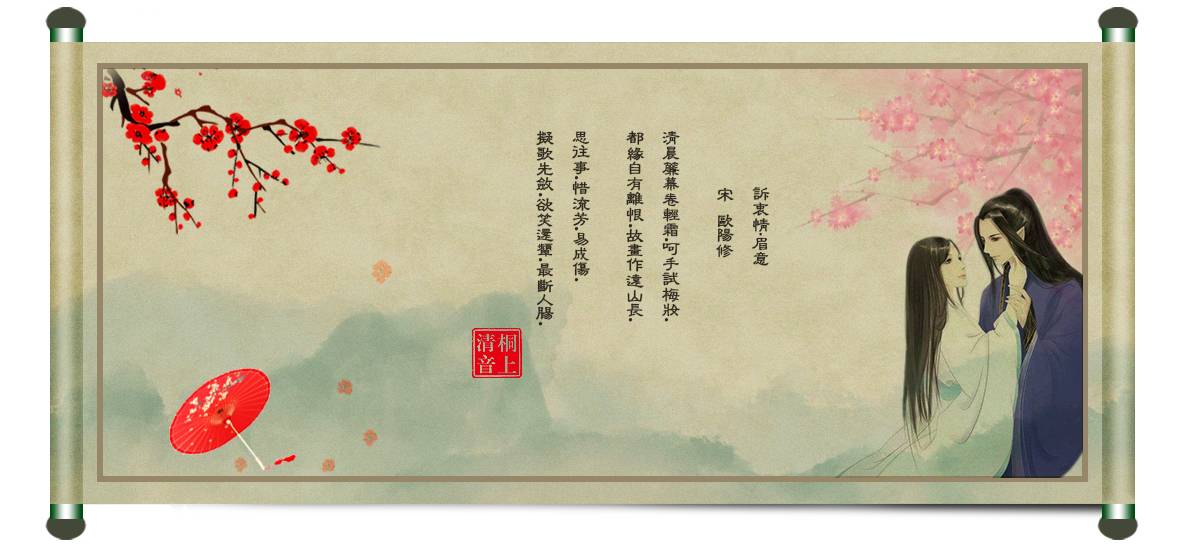 訴衷情·眉意
宋 歐陽修
清晨簾幕卷輕霜·呵手試梅妝·
都緣自有離恨·故畫作遠山長·
思往事·惜流芳·易成傷·
擬歌先斂·欲笑還顰·最斷人腸·
桐上
清音